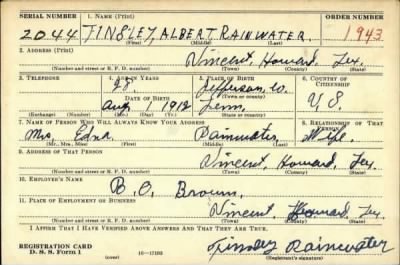 SERIAL NUMBER 1. NAME (Print) ORDER NUMBER
2044 TINSLEY, ALBERT RAINWATER. 1943
(First) (Middle) (Last)
2. ADDRESS (Print)
Vincent Howard Tex.
(Number and street or R. F. D. number) (Town) (County) (State)
3. TELEPHONE 4. AGE IN YEARS 5. PLACE OF BIRTH 6. COUNTRY OF CITIZENSHIP
28 Jefferson Co.
(Town or county)
DATE OF BIRTH
Aug 1 1912 Tenn. U.S.
(Exchange) (Number) (Mo.) (Day) (Yr.) (State or country)
7. NAME OF PERSON WHO WILL ALWAYS KNOW YOUR ADDRESS 8. RELATIONSHIP OF THAT PERSON
Mrs. Edna Rainwater, Wife.
(Mr., Mrs., Miss) (First) (Middle) (Last)
9. ADDRESS OF THAT PERSON
Vincent Howard, Tex.
(Number and street or R. F. D. number) (Town) (County) (State)
10. EMPLOYER'S NAME
B. O. Brown.
11. PLACE OF EMPLOYMENT OR BUSINESS
Vincent, Howard, Tex.
(Number and street or R. F. D. number) (Town) (County) (State)
I AFFIRM THAT I HAVE VERIFIED ABOVE ANSWERS AND THAT THEY ARE TRUE.
REGISTRATION CARD
D. S. S. Form 1 (over) 16—17105
Tinsley Rainwater
(Registrant's signature)